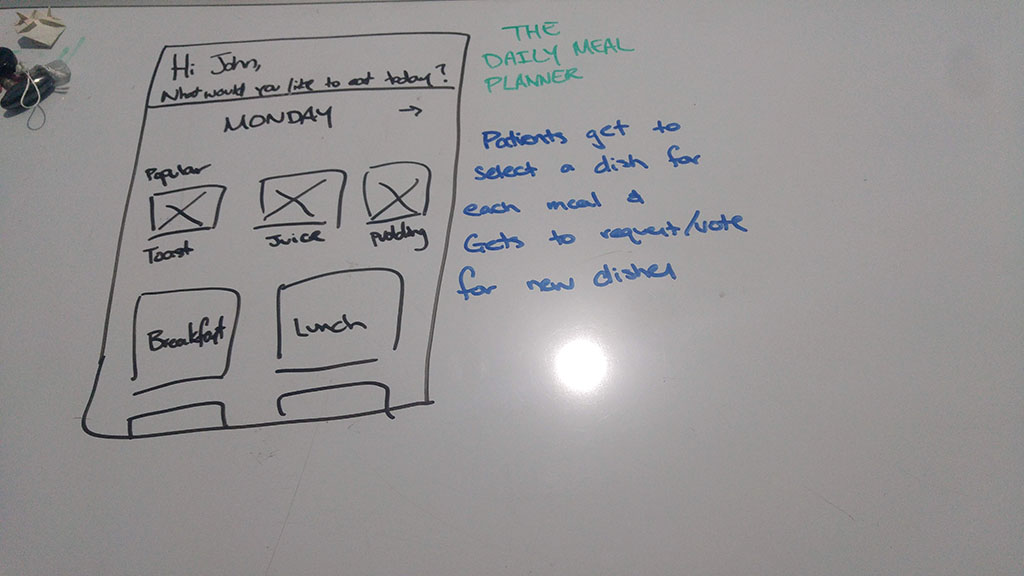 Hi John,
What would you like to eat today?
MONDAY →
Popular
Toast
Juice
Pudding
Breakfast
Lunch
THE
DAILY MEAL
PLANNER
Patients get to
select a dish for
each meal &
Gets to request/vote
for new dishes